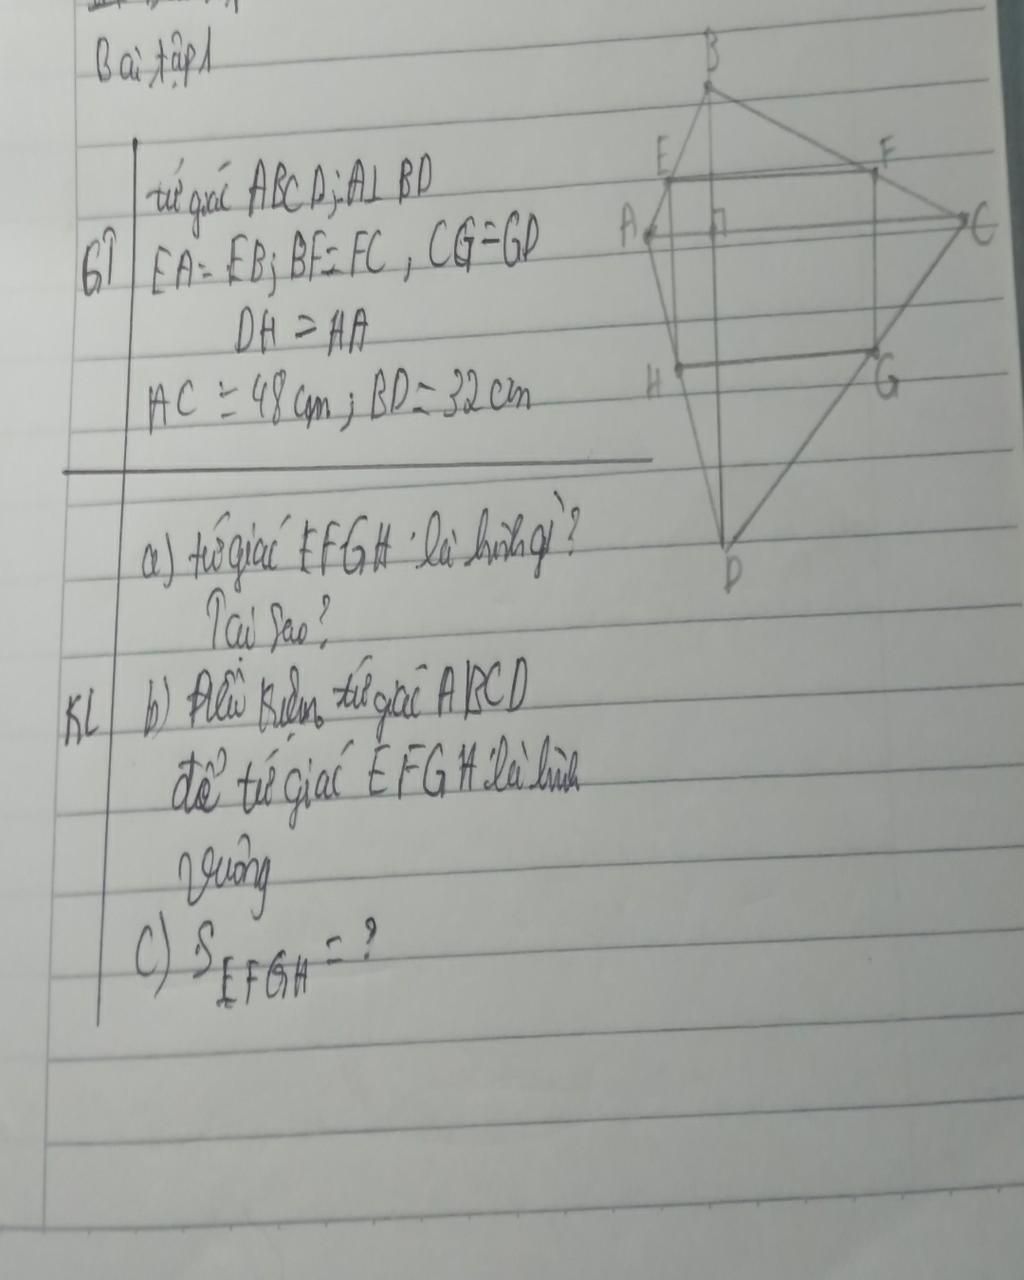 Bài tập 1
tứ giác ABCD; A⊥BD
GT
EA = EB; BF = FC, CG = GD
DH = HA
AC = 48 cm; BD = 32 cm
a) tứ giác EFGH là hình gì?
Tại sao?
KL
b) Điều kiện tứ giác ABCD
để tứ giác EFGH là hình
vuông
c) S EFGH = ?
B
E
F
A
C
H
G
D